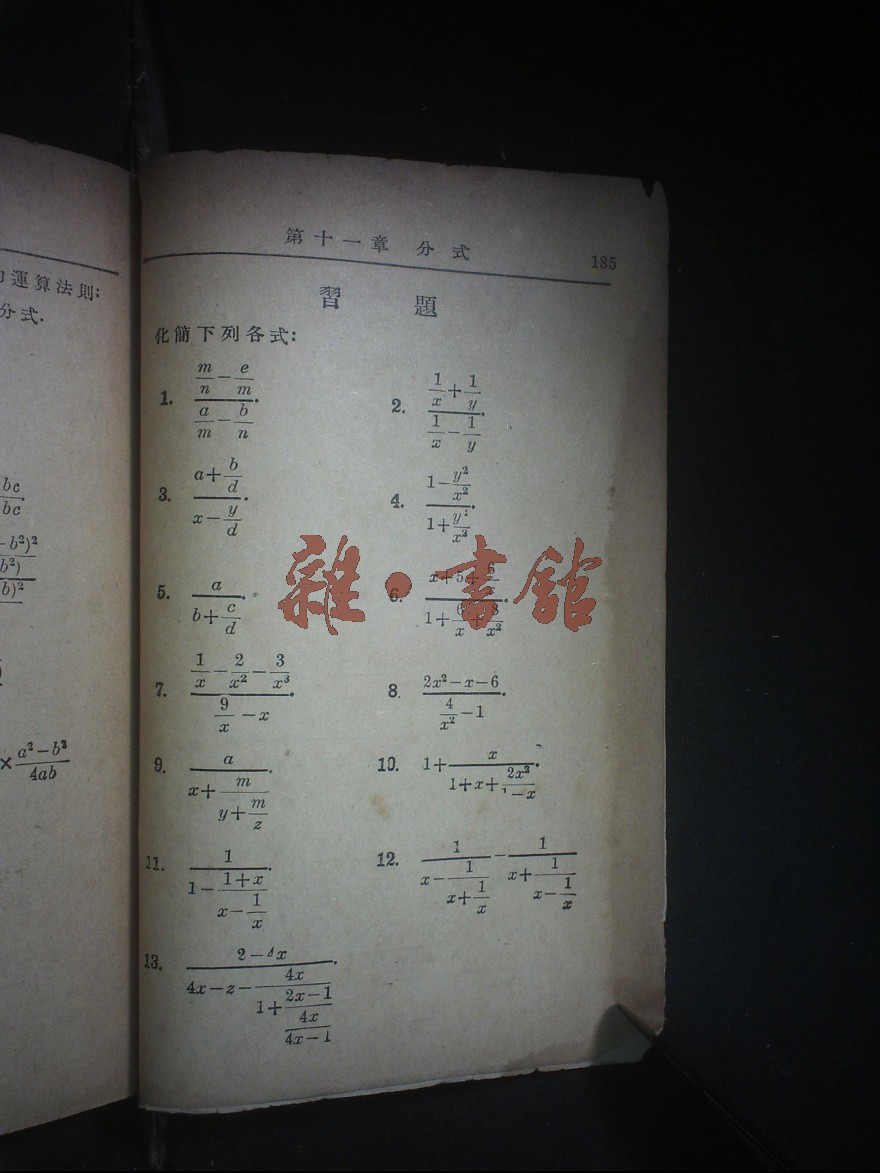 的運算法則:
分式.
bc
bc
-b²)²
b²)
b)²
× (a²-b²)/(4ab)
第十一章 分式 185
習 題
化簡下列各式:
1. (m/n - e/m)/(a/m - b/n).
2. (1/x + 1/y)/(1/x - 1/y).
3. (a + b/d)/(x - y/d).
4. (1 - y²/x²)/(1 + y²/x²).
5. a/(b + c/d).
6. (x+5+6/)/(1 + 6/x + 8/x²).
雜·書館
7. (1/x - 2/x² - 3/x³)/(9/x - x).
8. (2x²-x-6)/(4/x² - 1).
9. a/(x + m/(y + m/z)).
10. 1 + x/(1+x+2x²/(1-x)).
11. 1/(1 - (1+x)/(x - 1/x)).
12. 1/(x - 1/(x + 1/x)) - 1/(x + 1/(x - 1/x))
13. (2-4x)/(4x-z-4x/(1+(2x-1)/(4x/(4x-1)))).